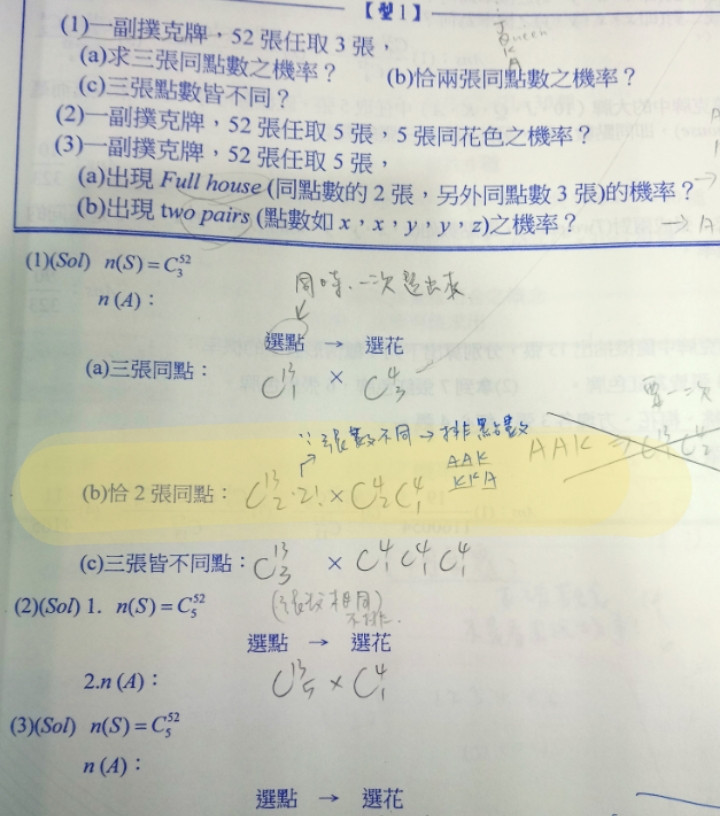 【型1】
(1)一副撲克牌，52 張任取 3 張，
(a)求三張同點數之機率？ (b)恰兩張同點數之機率？
(c)三張點數皆不同？
(2)一副撲克牌，52 張任取 5 張，5 張同花色之機率？
(3)一副撲克牌，52 張任取 5 張，
(a)出現 Full house (同點數的 2 張，另外同點數 3 張)的機率？→
(b)出現 two pairs (點數如 x，x，y，y，z)之機率？
(1)(Sol) n(S)=C₃⁵²
n(A)：
同時、一次選出來
選點 → 選花
(a)三張同點： C₁¹³ × C₃⁴
要一次
∵張數不同→排點數
AAK ⇒ C₂¹³ C₂⁴
(b)恰 2 張同點： C₂¹³·2! × C₂⁴ C₁⁴
AAK
KKA
(c)三張皆不同點： C₃¹³ × C₁⁴ C₁⁴ C₁⁴
(2)(Sol) 1. n(S)=C₅⁵²
(張數相同)
不排.
選點 → 選花
2.n(A)： C₅¹³ × C₁⁴
(3)(Sol) n(S)=C₅⁵²
n(A)：
選點 → 選花